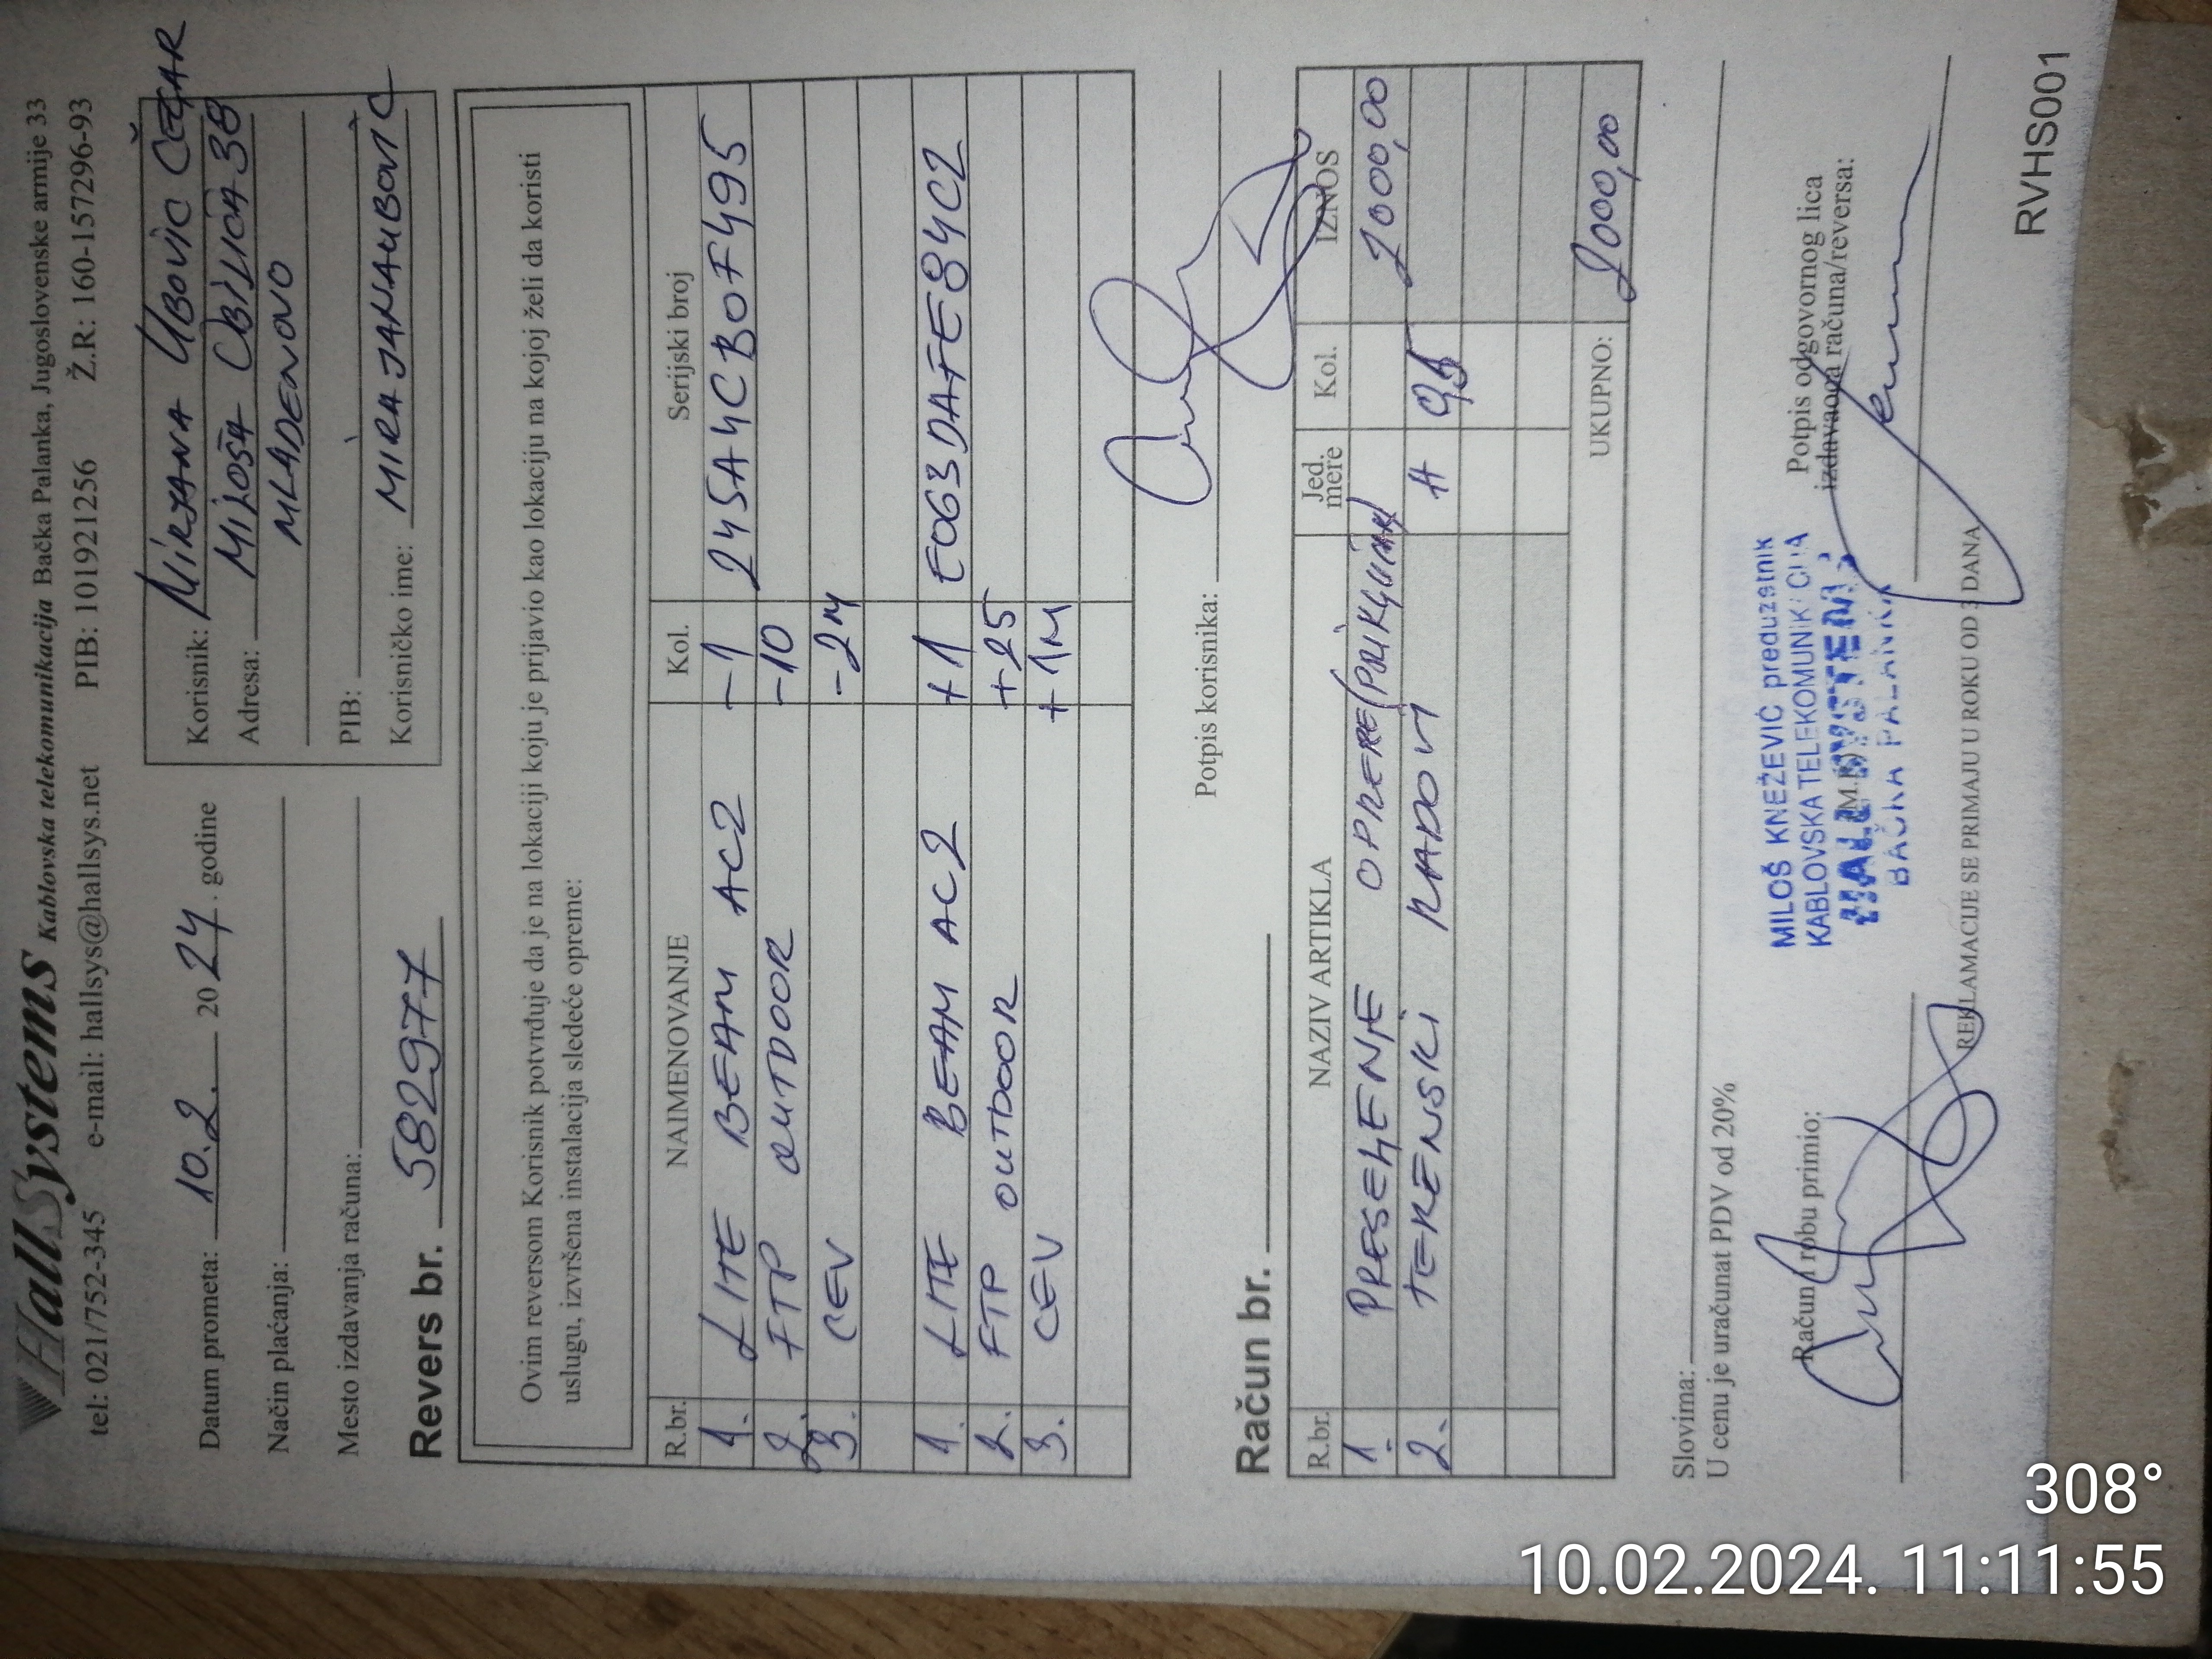 HallSystems Kablovska telekomunikacija Bačka Palanka, Jugoslovenske armije 33
tel: 021/752-345 e-mail: hallsys@hallsys.net PIB: 101921256 Ž.R: 160-157296-93
Datum prometa: 10.2. 2024. godine
Način plaćanja:
Mesto izdavanja računa:
Korisnik: MIRJANA UBOVIĆ
Adresa: MILOŠA OBILIĆA 38
MLADENOVO
PIB:
Korisničko ime: MIRAJANAUBOVIC
Revers br. 582977
Ovim reversom Korisnik potvrđuje da je na lokaciji koju je prijavio kao lokaciju na kojoj želi da koristi
uslugu, izvršena instalacija sledeće opreme:
R.br. NAIMENOVANJE Kol. Serijski broj
1. LITE BEAM AC2 -1 245A4CB0F495
2. FTP OUTDOOR -10
3. CEV -2M
1. LITE BEAM AC2 +1 E063DAFE84C2
2. FTP OUTDOOR +25
3. CEV +1M
Potpis korisnika:
Račun br.
R.br. NAZIV ARTIKLA Jed. mere Kol. IZNOS
1. PRESELENJE OPREME 2000,00
2. TERENSKI RADOVI H
UKUPNO: 2000,00
Slovima:
U cenu je uračunat PDV od 20%
Račun i robu primio:
MILOŠ KNEŽEVIĆ preduzetnik
KABLOVSKA TELEKOMUNIKACIJA
HALL SYSTEMS
BAČKA PALANKA
M.P.
Potpis odgovornog lica
izdavaoca računa/reversa:
REKLAMACIJE SE PRIMAJU U ROKU OD 3 DANA
RVHS001
308°
10.02.2024. 11:11:55